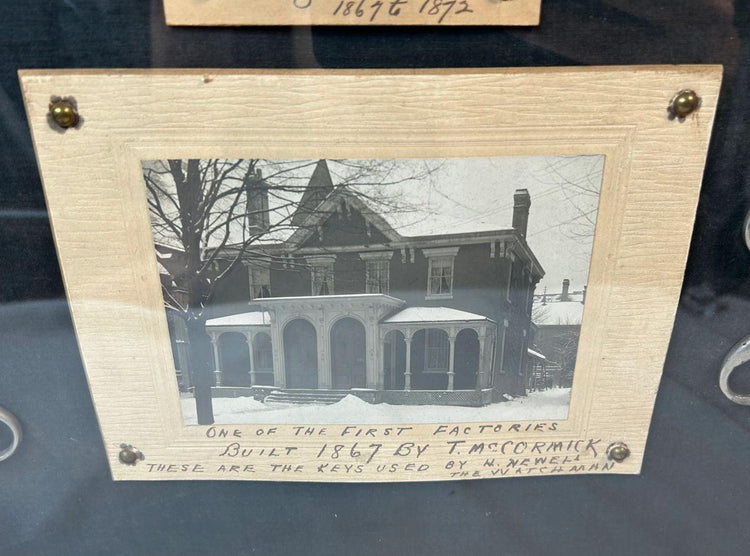 1867 to 1872
ONE OF THE FIRST FACTORIES
BUILT 1867 BY T. McCORMICK
THESE ARE THE KEYS USED BY N. NEWELL
THE WATCHMAN